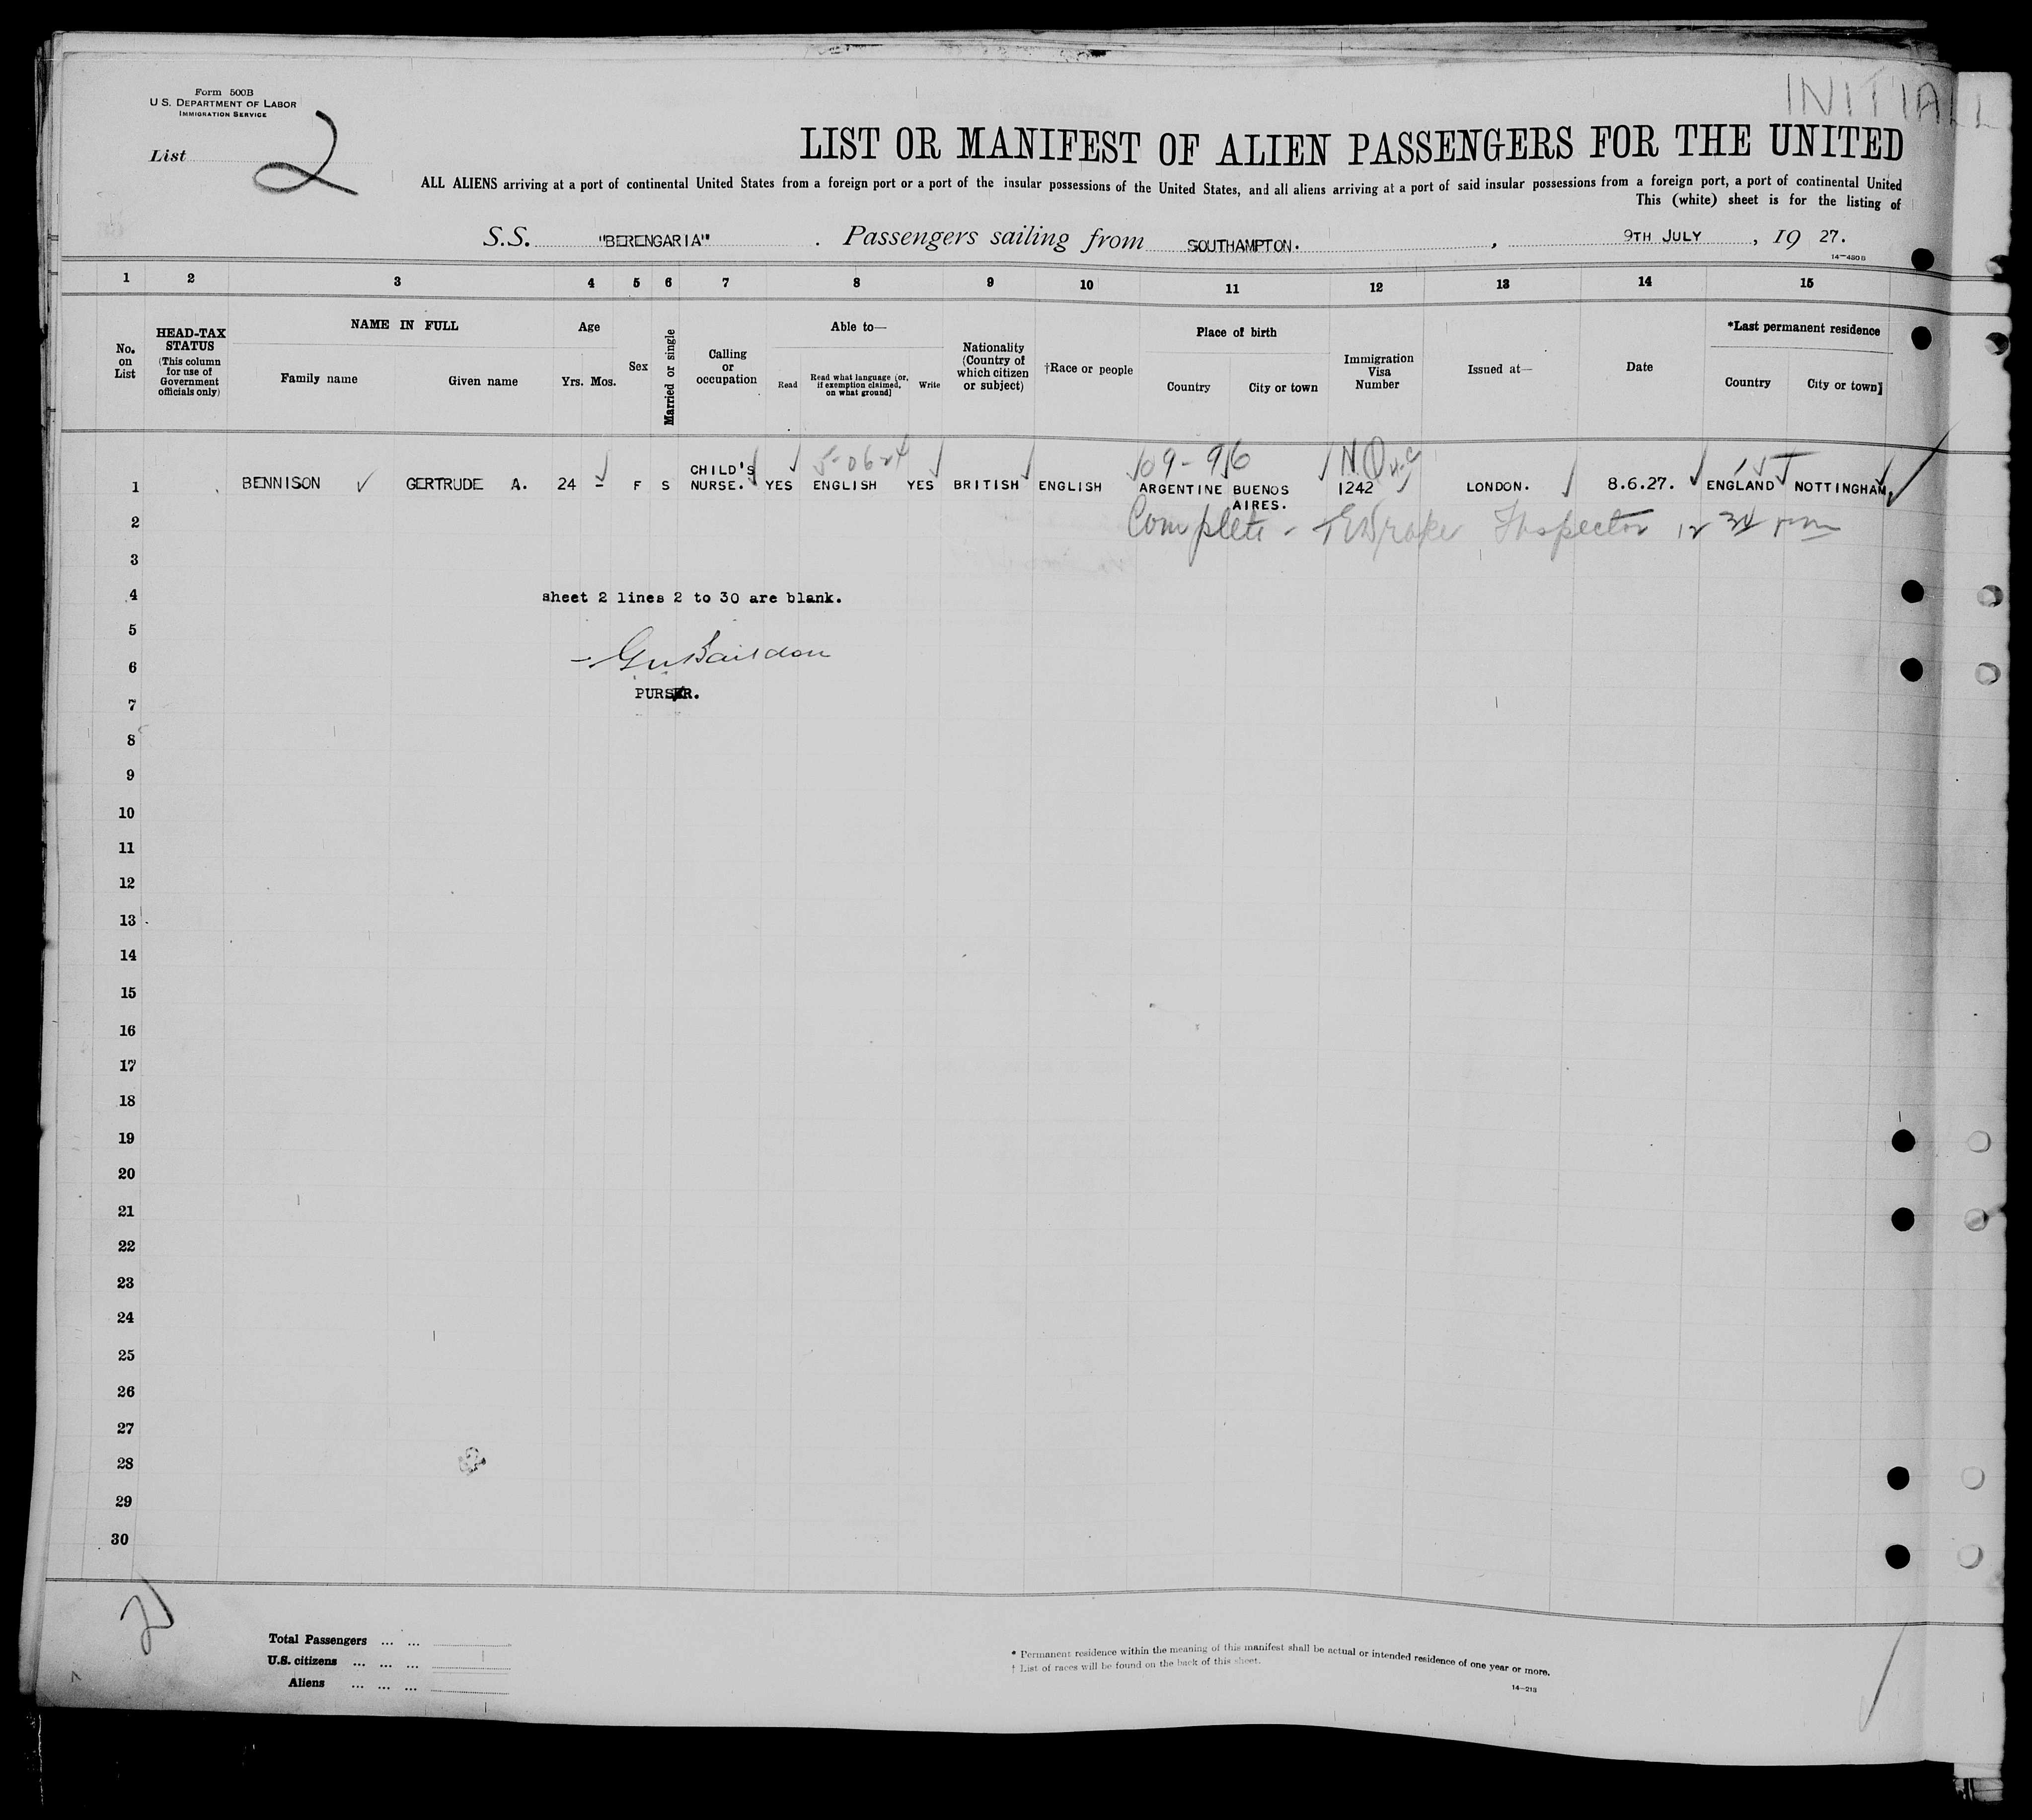 INITIAL
Form 500B
U S. DEPARTMENT OF LABOR
IMMIGRATION SERVICE
List 2
LIST OR MANIFEST OF ALIEN PASSENGERS FOR THE UNITED
ALL ALIENS arriving at a port of continental United States from a foreign port or a port of the insular possessions of the United States, and all aliens arriving at a port of said insular possessions from a foreign port, a port of continental United
This (white) sheet is for the listing of
S.S. "BERENGARIA" . Passengers sailing from SOUTHAMPTON. , 9TH JULY , 19 27.
14-480 B
1 2 3 4 5 6 7 8 9 10 11 12 13 14 15
No. on List
HEAD-TAX STATUS (This column for use of Government officials only)
NAME IN FULL
Family name Given name
Age
Yrs. Mos.
Sex
Married or single
Calling or occupation
Able to—
Read
Read what language [or, if exemption claimed, on what ground]
Write
Nationality (Country of which citizen or subject)
†Race or people
Place of birth
Country City or town
Immigration Visa Number
Issued at—
Date
*Last permanent residence
Country City or town]
1 BENNISON GERTRUDE A. 24 - F S CHILD'S NURSE. YES ENGLISH YES BRITISH ENGLISH ARGENTINE BUENOS AIRES. 1242 LONDON. 8.6.27. ENGLAND NOTTINGHAM.
2 Complete - Inspector
3
4 sheet 2 lines 2 to 30 are blank.
5
6
PURSER.
7
8
9
10
11
12
13
14
15
16
17
18
19
20
21
22
23
24
25
26
27
28
29
30
2
Total Passengers ... ...
U.S. citizens ... ... ...
Aliens ... ... ...
* Permanent residence within the meaning of this manifest shall be actual or intended residence of one year or more.
† List of races will be found on the back of this sheet.
14-213